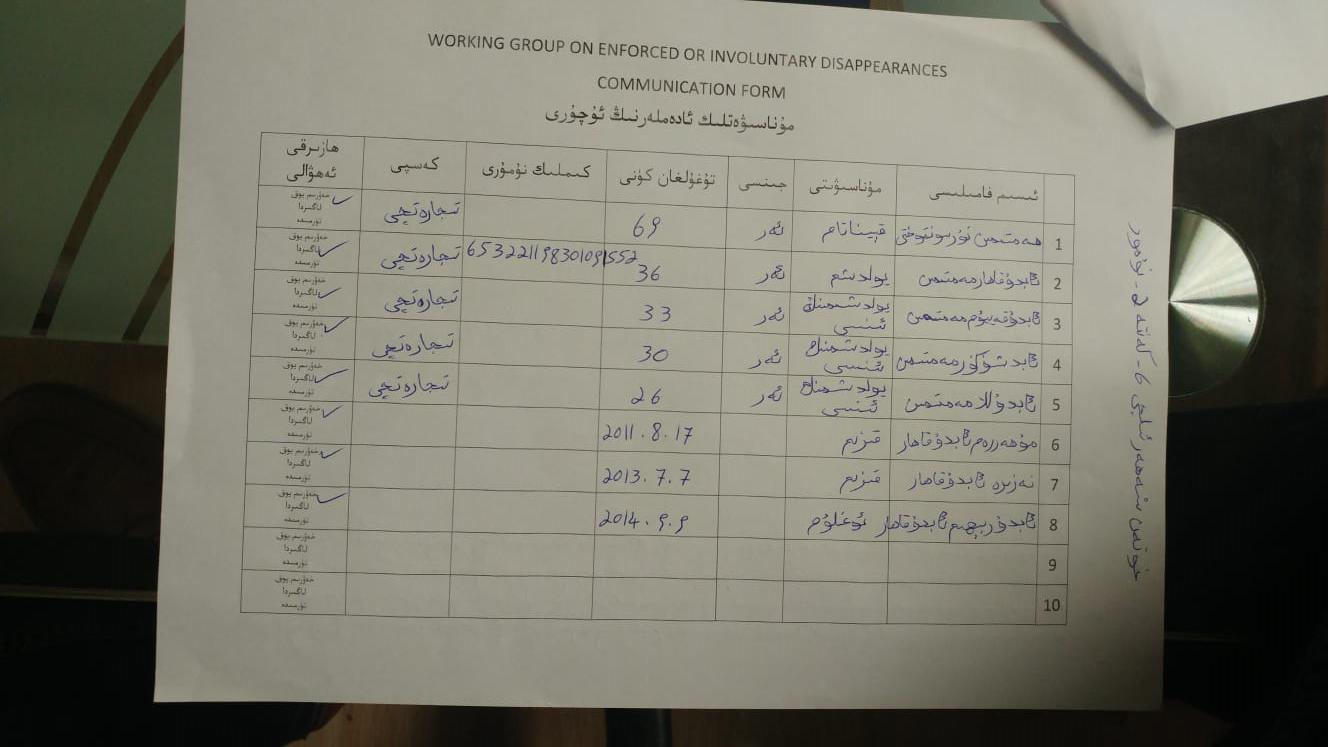 WORKING GROUP ON ENFORCED OR INVOLUNTARY DISAPPEARANCES
COMMUNICATION FORM
مۇناسىۋەتلىك ئادەملەرنىڭ ئۇچۇرى
ئىسىم فامىلىسى مۇناسىۋىتى جىنسى تۇغۇلغان كۈنى كىملىك نۇمۇرى كەسپى ھازىرقى ئەھۋالى
1 مەمتىمىن نۇرسۇنتوختى قېيناتام ئەر 69 تىجارەتچى خەۋرىم يوق ✓ لاگىردا تۈرمىدە
2 ئابدۇقاھار مەمتىمىن يولدىشىم ئەر 36 653221198301091552 تىجارەتچى خەۋرىم يوق لاگىردا ✓ تۈرمىدە
3 ئابدۇقەييۇم مەمتىمىن يولدىشىمنىڭ ئىنىسى ئەر 33 تىجارەتچى خەۋرىم يوق لاگىردا ✓ تۈرمىدە
4 ئابدۇشۈكۈر مەمتىمىن يولدىشىمنىڭ ئىنىسى ئەر 30 تىجارەتچى خەۋرىم يوق ✓ لاگىردا تۈرمىدە
5 ئابدۇللا مەمتىمىن يولدىشىمنىڭ ئىنىسى ئەر 26 تىجارەتچى خەۋرىم يوق لاگىردا ✓ تۈرمىدە
6 مۇھەررەم ئابدۇقاھار قىزىم 2011.8.17 خەۋرىم يوق ✓ لاگىردا تۈرمىدە
7 نەزىرە ئابدۇقاھار قىزىم 2013.7.7 خەۋرىم يوق ✓ لاگىردا تۈرمىدە
8 ئابدۇرېھىم ئابدۇقاھار ئوغلۇم 2014.9.9 خەۋرىم يوق ✓ لاگىردا تۈرمىدە
9 خەۋرىم يوق لاگىردا تۈرمىدە
10 خەۋرىم يوق لاگىردا تۈرمىدە
خوتەن شەھەر ئىلچى 6-كەنتە 2-نۇمۇر